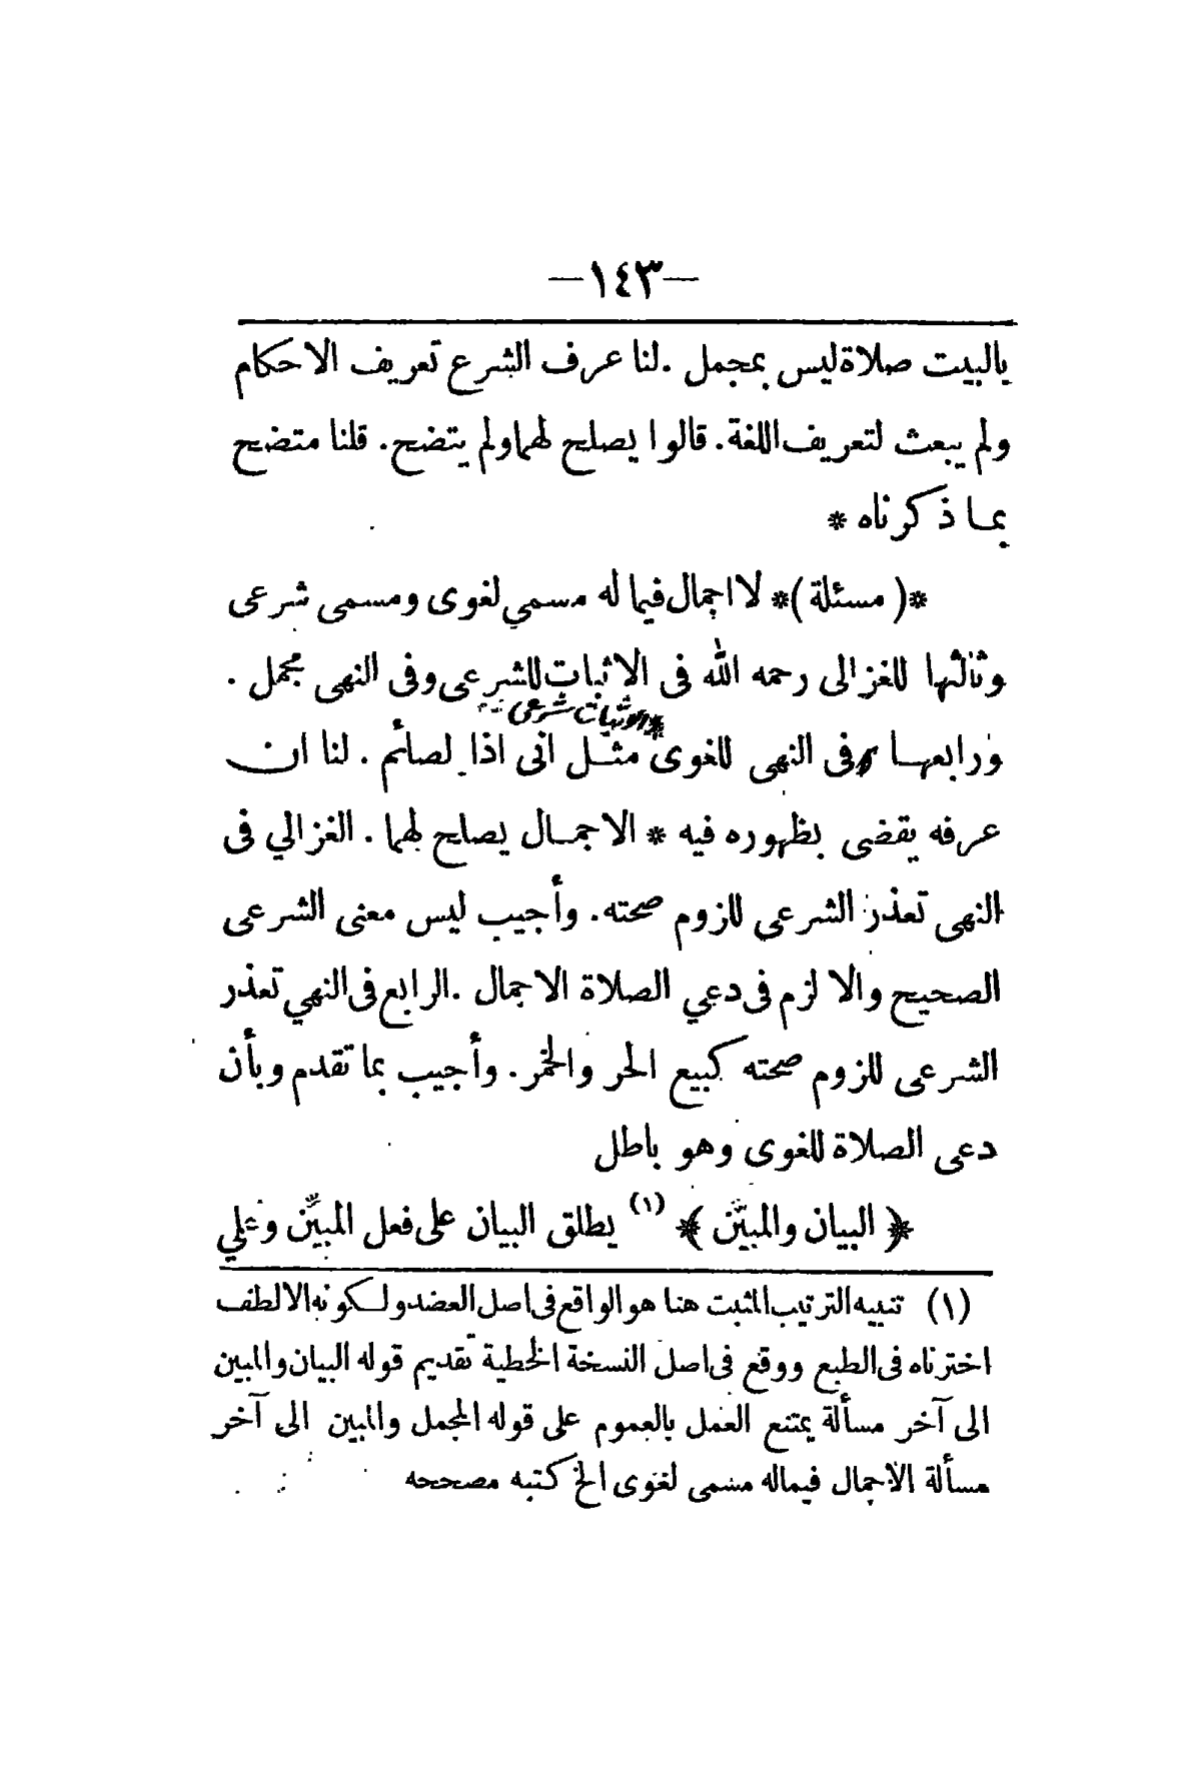 —١٤٣—
بالبيت صلاة ليس بمجمل . لنا عرف الشرع تعريف الاحكام
ولم يبعث لتعريف اللغة . قالوا يصلح لهما ولم يتضح . قلنا متضح
بما ذكرناه *
*( مسئلة )* لا اجمال فيما له مسمي لغوى ومسمى شرعى
وثالثها للغزالى رحمه الله فى الاثبات للشرعى وفى النهى مجمل .
الاثبات شرعى
ورابعها وفى النهى للغوى مثل انى اذا لصائم . لنا ان
عرفه يقضى بظهوره فيه * الاجمال يصلح لهما . الغزالي فى
النهى تعذر الشرعى للزوم صحته . وأجيب ليس معنى الشرعى
الصحيح والا لزم فى دعي الصلاة الاجمال . الرابع فى النهي تعذر
الشرعى للزوم صحته كبيع الحر والخمر . وأجيب بما تقدم وبأن
دعى الصلاة للغوى وهو باطل
﴿ البيان والمبيَّن ﴾ (١) يطلق البيان على فعل المبيِّن وعلي
(١) تنبيه الترتيب المثبت هنا هو الواقع فى اصل العضد ولكونه الالطف
اخترناه فى الطبع ووقع فى اصل النسخة الخطية تقديم قوله البيان والمبين
الى آخر مسألة يمتنع العمل بالعموم على قوله المجمل والمبين الى آخر
مسألة الاجمال فيماله مسمى لغوى الخ كتبه مصححه